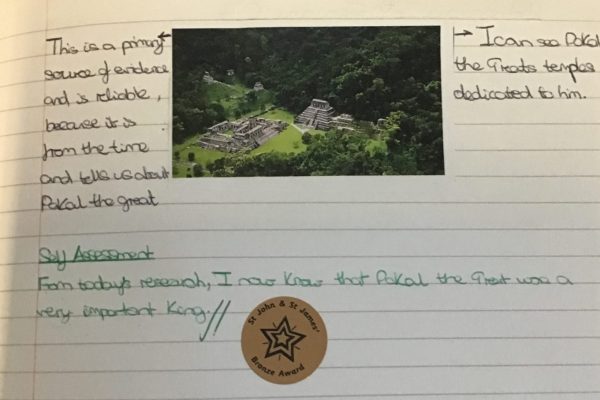 This is a primary
source of evidence
and is reliable,
because it is
from the time
and tells us about
Pakal the great
I can see Pakal
the Greats temples
dedicated to him.
Self Assessment
From today's research, I now know that Pakal the Great was a
very important King.//
St John & St James'
Bronze Award